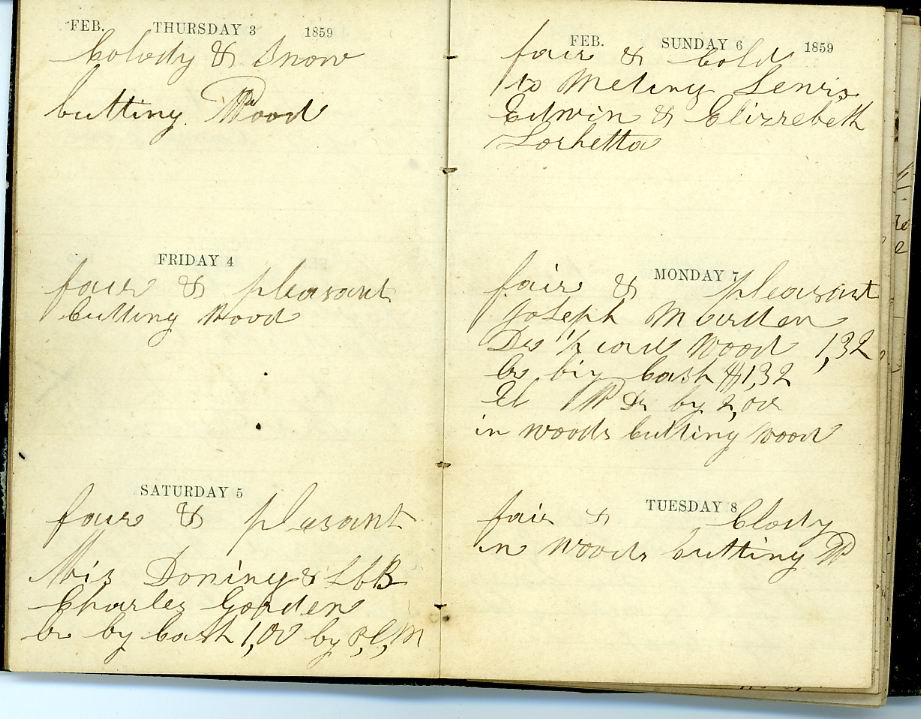 FEB. THURSDAY 3 1859
Colody & Snow
Cutting Wood
FRIDAY 4
fair & pleasant
Cutting Wood
SATURDAY 5
fair & plesant
Doniny &
Charles Gorden
Cr by Cash 1,00 by P,C,M
FEB. SUNDAY 6 1859
fair & Cold
to Meting Lewis
Edwin & Elizrebeth
Lorhetta
MONDAY 7
fair & pleasant
Joseph Marden
Dr Wood 1,32
Cr by Cash $1,32
Dr by 2,00
in woods Cutting wood
TUESDAY 8
fair & Clody
in Woods Cutting W